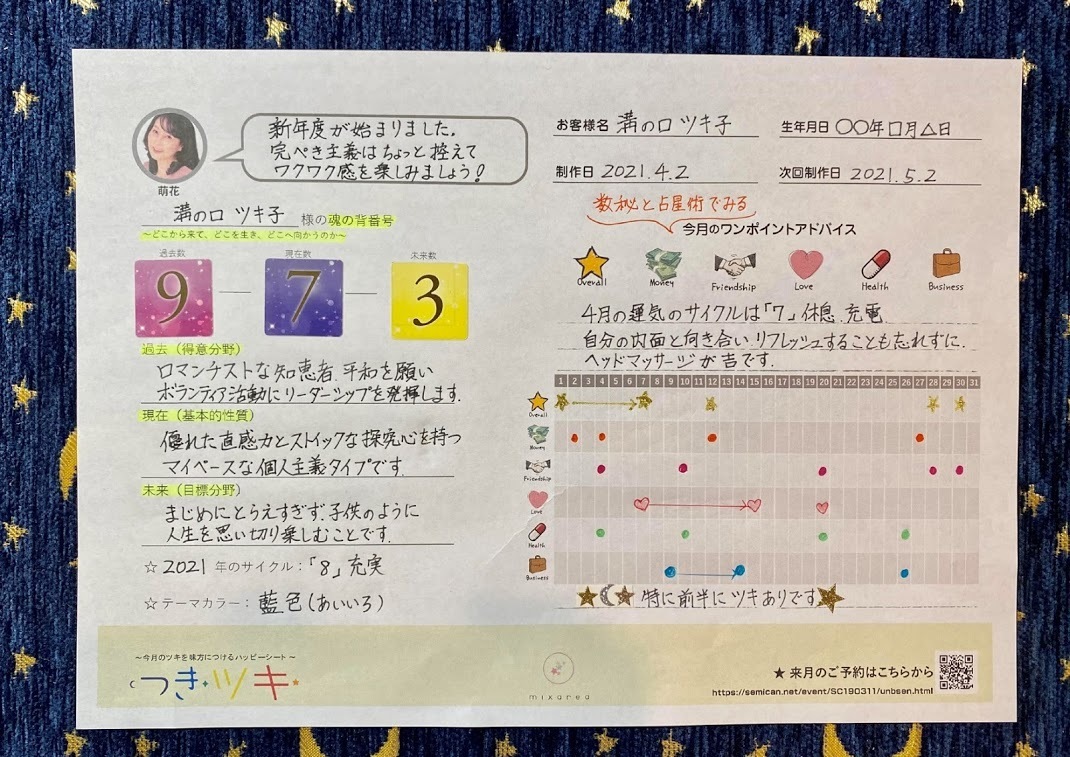 新年度が始まりました。
完ぺき主義はちょっと控えて
ワクワク感を楽しみましょう!
萌花
溝の口 ツキ子 様の魂の背番号
～どこから来て、どこを生き、どこへ向かうのか～
過去数 現在数 未来数
9 7 3
過去（得意分野）
ロマンチストな知恵者、平和を願い
ボランティア活動にリーダーシップを発揮します。
現在（基本的性質）
優れた直感力とストイックな探究心を持つ
マイペースな個人主義タイプです。
未来（目標分野）
まじめにとらえすぎず、子供のように
人生を思い切り楽しむことです。
☆2021年のサイクル：「8」充実
☆テーマカラー：藍色(あいいろ)
お客様名 溝の口 ツキ子 生年月日 〇〇年□月△日
制作日 2021.4.2 次回制作日 2021.5.2
数秘と占星術でみる
今月のワンポイントアドバイス
Overall Money Friendship Love Health Business
4月の運気のサイクルは「7」休息、充電
自分の内面と向き合い、リフレッシュすることも忘れずに。
ヘッドマッサージが吉です。
1 2 3 4 5 6 7 8 9 10 11 12 13 14 15 16 17 18 19 20 21 22 23 24 25 26 27 28 29 30 31
Overall
Money
Friendship
Love
Health
Business
特に前半にツキありです
～今月のツキを味方につけるハッピーシート～
つき✦ツキ★
mixarea
★ 来月のご予約はこちらから
https://semican.net/event/SC190311/unbsen.html